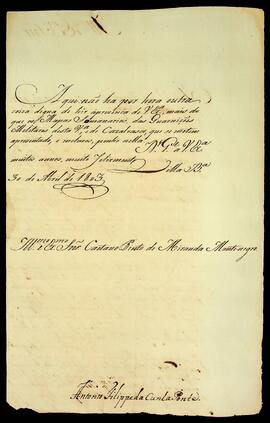 Aqui não ha por hora outra
coiza digna de hir á prezença de V Exa. mais do
que os Mapas Semanarios, das Guarniçoes
Militares desta Va. e de Cazalvasco, que se metem
aprezentado, e incluzos, ponho nella
D.s G.e a V Exa.
muitos annos, muito felizmente
Villa Ba.
30 de Abril de 1803
Illmo. e Exmo. Snor. Caetano Pinto de Miranda Montenegro
Antonio Filippe da Cunha Ponte